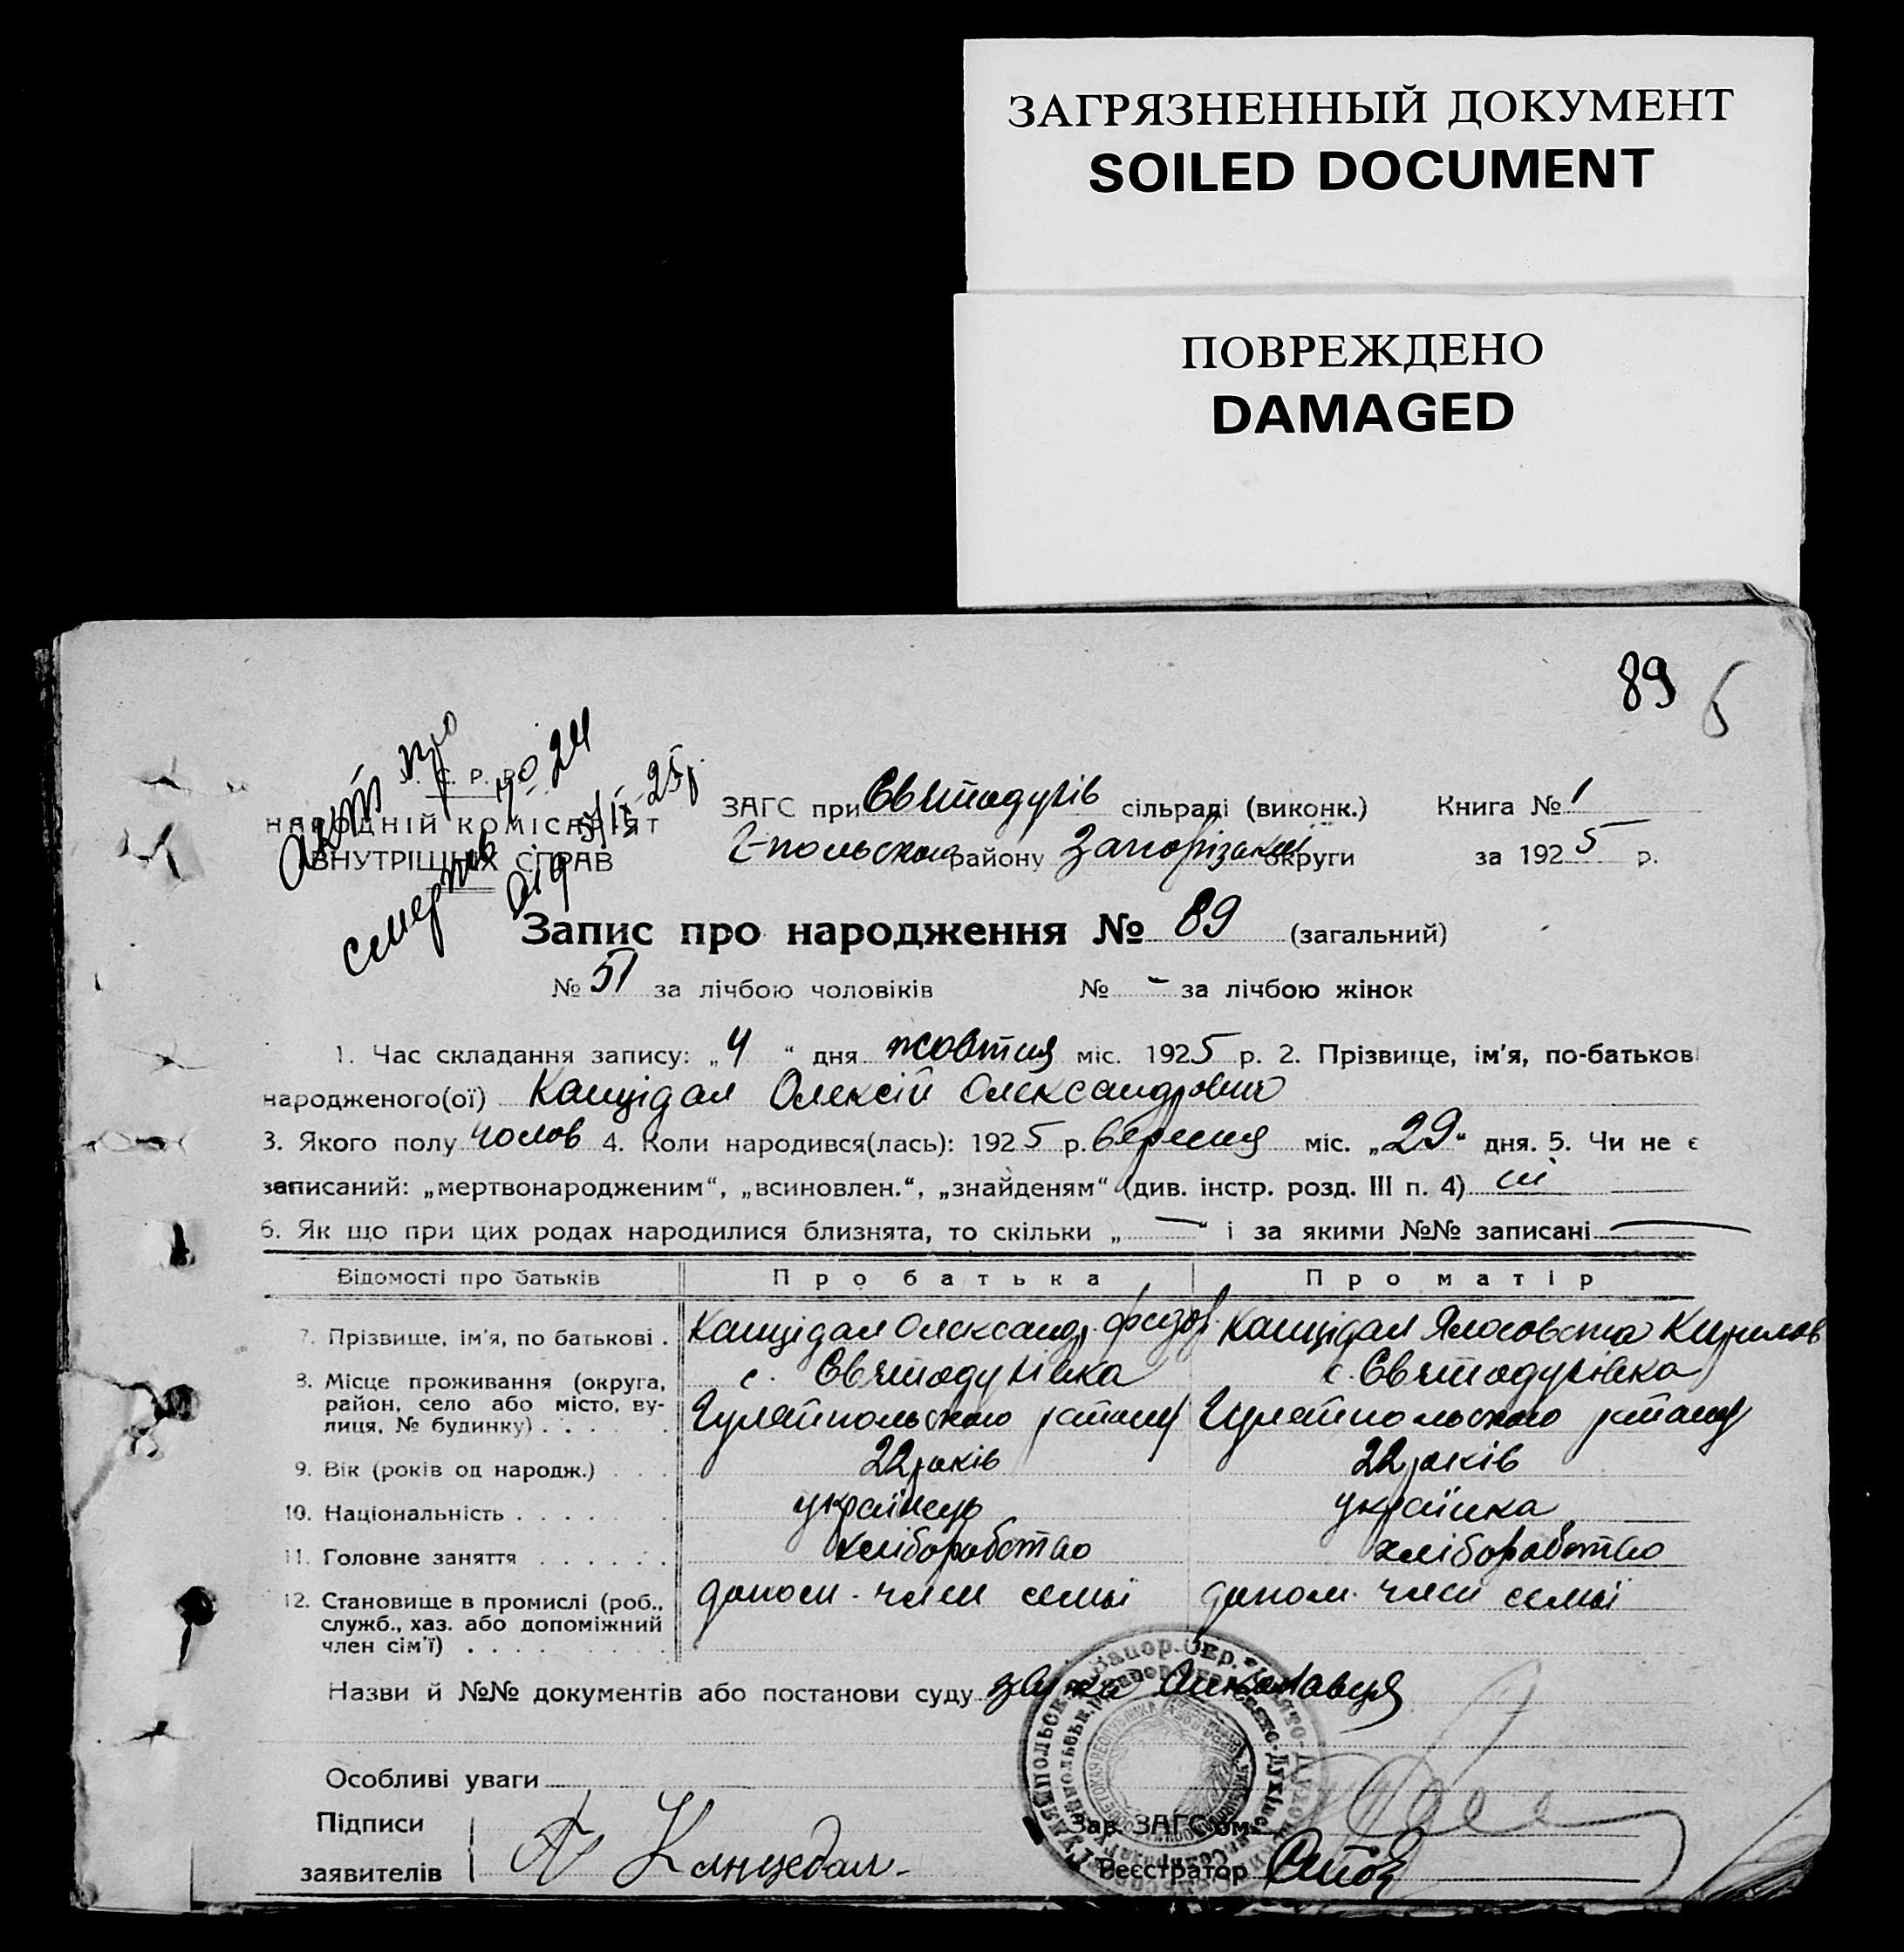 ЗАГРЯЗНЕННЫЙ ДОКУМЕНТ
SOILED DOCUMENT
ПОВРЕЖДЕНО
DAMAGED
89
акт про
смерть № 24
від 5/IX-25р.
У. С. Р. Р.
НАРОДНІЙ КОМІСАРІЯТ
ВНУТРІШНІХ СПРАВ
ЗАГС при Святодухів сільраді (виконк.) Книга № 1
Г-польского району Запорізької округи за 1925 р.
Запис про народження № 89 (загальний)
№ 51 за лічбою чоловіків № - за лічбою жінок
1. Час складання запису: „4“ дня жовтня міс. 1925 р. 2. Прізвище, ім'я, по-батькові
народженого(ої) Канцідал Олексій Олександрович
3. Якого полу чолов 4. Коли народився(лась): 1925 р. вересня міс. „29“ дня. 5. Чи не є
записаний: „мертвонародженим“, „всиновлен.“, „знайденям“ (див. інстр. розд. III п. 4) ні
6. Як що при цих родах народилися близнята, то скільки „—“ і за якими №№ записані —
Відомості про батьків Про батька Про матір
7. Прізвище, ім'я, по батькові . Канцідал Олександр Федор. Канцідал Кирилов
8. Місце проживання (округа, район, село або місто, вулиця, № будинку) . . . с. Святодухівка Гуляйпольского району с. Святодухівка Гуляйпольского району
9. Вік (років од народж.) . . . 22 років 22 років
10. Національність . . . . . . українець українка
11. Головне заняття . . . . . . хліборобство хліборобство
12. Становище в промислі (роб., служб., хаз. або допоміжний член сім'ї) . . . . . . . . допом. член семьї допом. член семьї
Назви й №№ документів або постанови суду
Особливі уваги
Підписи
заявителів Канцедал
Зав. ЗАГС'ом
Реєстратор